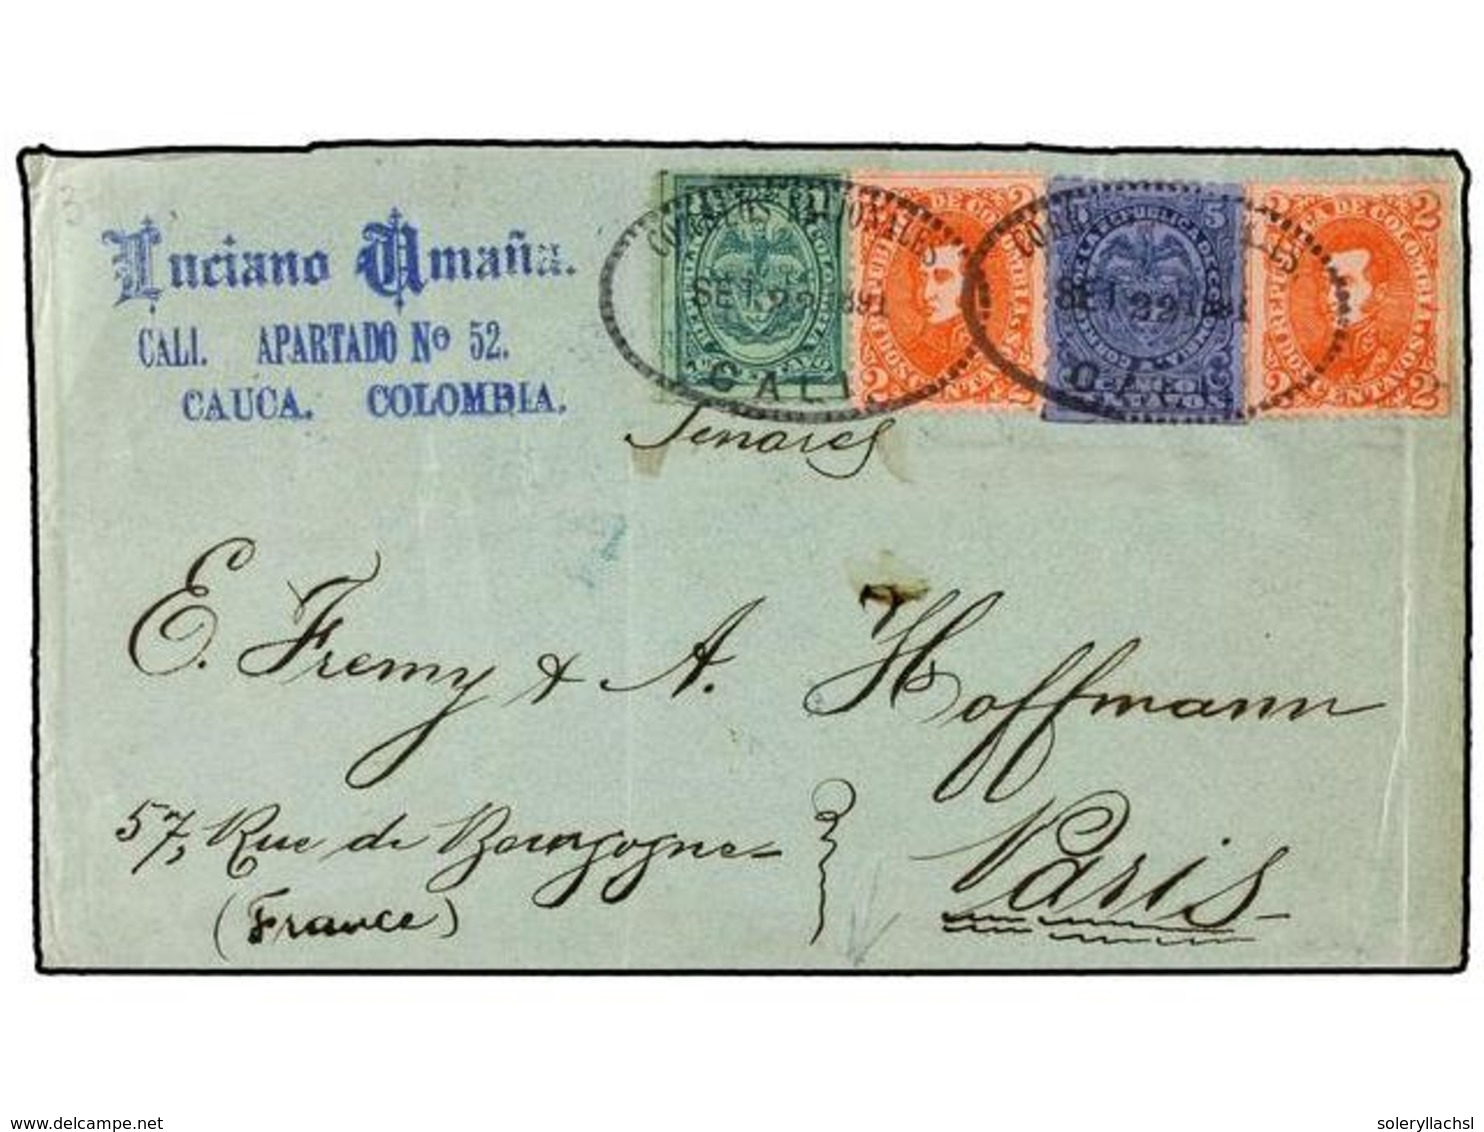 Luciano Umaña.
CALI. APARTADO Nº 52.
CAUCA. COLOMBIA.
CORREOS NACIONALES
SET. 22 1891
CALI
CORREOS NACIONALES
SET. 22 1891
CALI
E. Fremy & A. Hoffmann
57, Rue de Bourgogne
(France)
Paris
delcampe.net
soleryllachsl